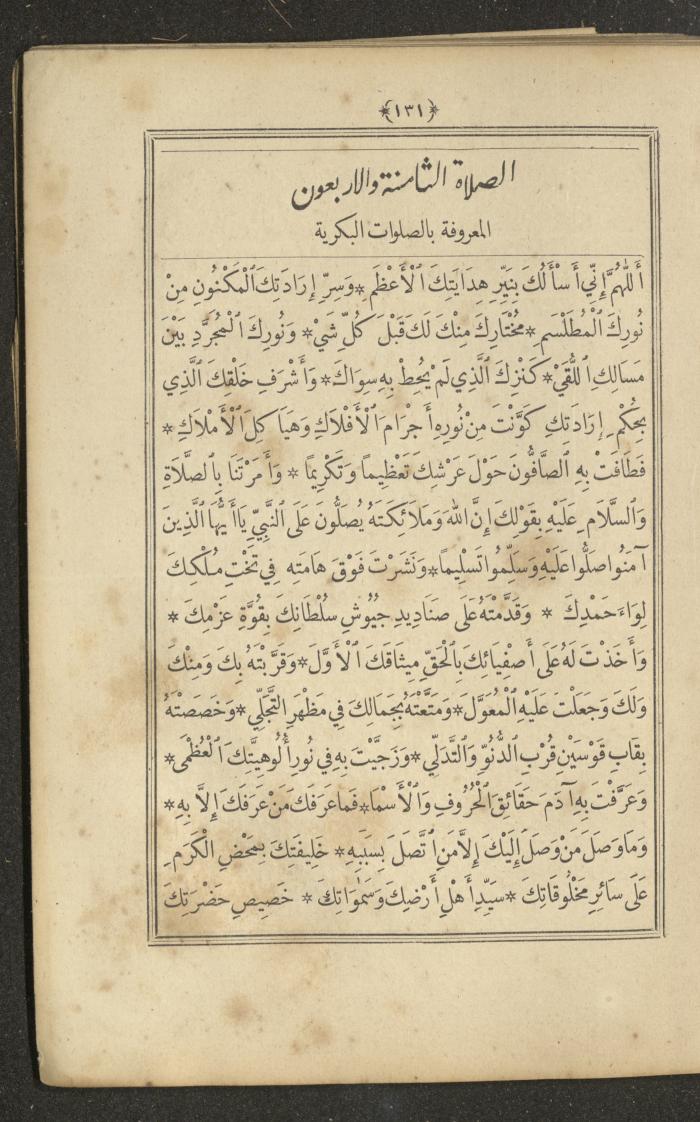 ﴿١٣١﴾
الصلاة الثامنة والاربعون
المعروفة بالصلوات البكرية
أَللّٰهُمَّ إِنِّي أَسْأَلُكَ بِنَيِّرِ هِدَايَتِكَ ٱلْأَعْظَمِ * وَسِرِّ إِرَادَتِكَ ٱلْمَكْنُونِ مِنْ
نُورِكَ ٱلْمُطَلْسَمِ * مُخْتَارِكَ مِنْكَ لَكَ قَبْلَ كُلِّ شَيْءٍ * وَنُورِكَ ٱلْمُجَرَّدِ بَيْنَ
مَسَالِكِ ٱللُّقِيّ * كَنْزِكَ ٱلَّذِي لَمْ يُحِطْ بِهِ سِوَاكَ * وَأَشْرَفِ خَلْقِكَ ٱلَّذِي
بِحُكْمِ إِرَادَتِكَ كَوَّنْتَ مِنْ نُورِهِ أَجْرَامَ ٱلْأَفْلَاكِ وَهَيَاكِلَ ٱلْأَمْلَاكِ *
فَطَافَتْ بِهِ ٱلصَّافُّونَ حَوْلَ عَرْشِكَ تَعْظِيماً وَتَكْرِيماً * وَأَمَرْتَنَا بِٱلصَّلَاةِ
وَٱلسَّلَامِ عَلَيْهِ بِقَوْلِكَ إِنَّ ٱللهَ وَمَلَائِكَتَهُ يُصَلُّونَ عَلَى ٱلنَّبِيِّ يَاأَيُّهَا ٱلَّذِينَ
آمَنُوا صَلُّوا عَلَيْهِ وَسَلِّمُوا تَسْلِيماً * وَنَشَرْتَ فَوْقَ هَامَتِهِ فِي تَخْتِ مُلْكِكَ
لِوَاءَ حَمْدِكَ * وَقَدَّمْتَهُ عَلَى صَنَادِيدِ جُيُوشِ سُلْطَانِكَ بِقُوَّةِ عَزْمِكَ *
وَأَخَذْتَ لَهُ عَلَى أَصْفِيَائِكَ بِٱلْحَقِّ مِيثَاقَكَ ٱلْأَوَّلَ * وَقَرَّبْتَهُ بِكَ وَمِنْكَ
وَلَكَ وَجَعَلْتَ عَلَيْهِ ٱلْمُعَوَّلَ * وَمَتَّعْتَهُ بِجَمَالِكَ فِي مَظْهَرِ التَّجَلِّي * وَخَصَصْتَهُ
بِقَابِ قَوْسَيْنِ قُرْبِ ٱلدُّنُوِّ وَٱلتَّدَلِّي * وَزَجَّيْتَ بِهِ فِي نُورِ أُلُوهِيَّتِكَ ٱلْعُظْمَى *
وَعَرَّفْتَ بِهِ آدَمَ حَقَائِقَ ٱلْحُرُوفِ وَٱلْأَسْمَا * فَمَا عَرَفَكَ مَنْ عَرَفَكَ إِلَّا بِهِ *
وَمَا وَصَلَ مَنْ وَصَلَ إِلَيْكَ إِلَّا مَنِ ٱتَّصَلَ بِسَبَبِهِ * خَلِيفَتِكَ بِمَحْضِ الْكَرَمِ
عَلَى سَائِرِ مَخْلُوقَاتِكَ * سَيِّدِ أَهْلِ أَرْضِكَ وَسَمٰوَاتِكَ * خَصِيصِ حَضْرَتِكَ